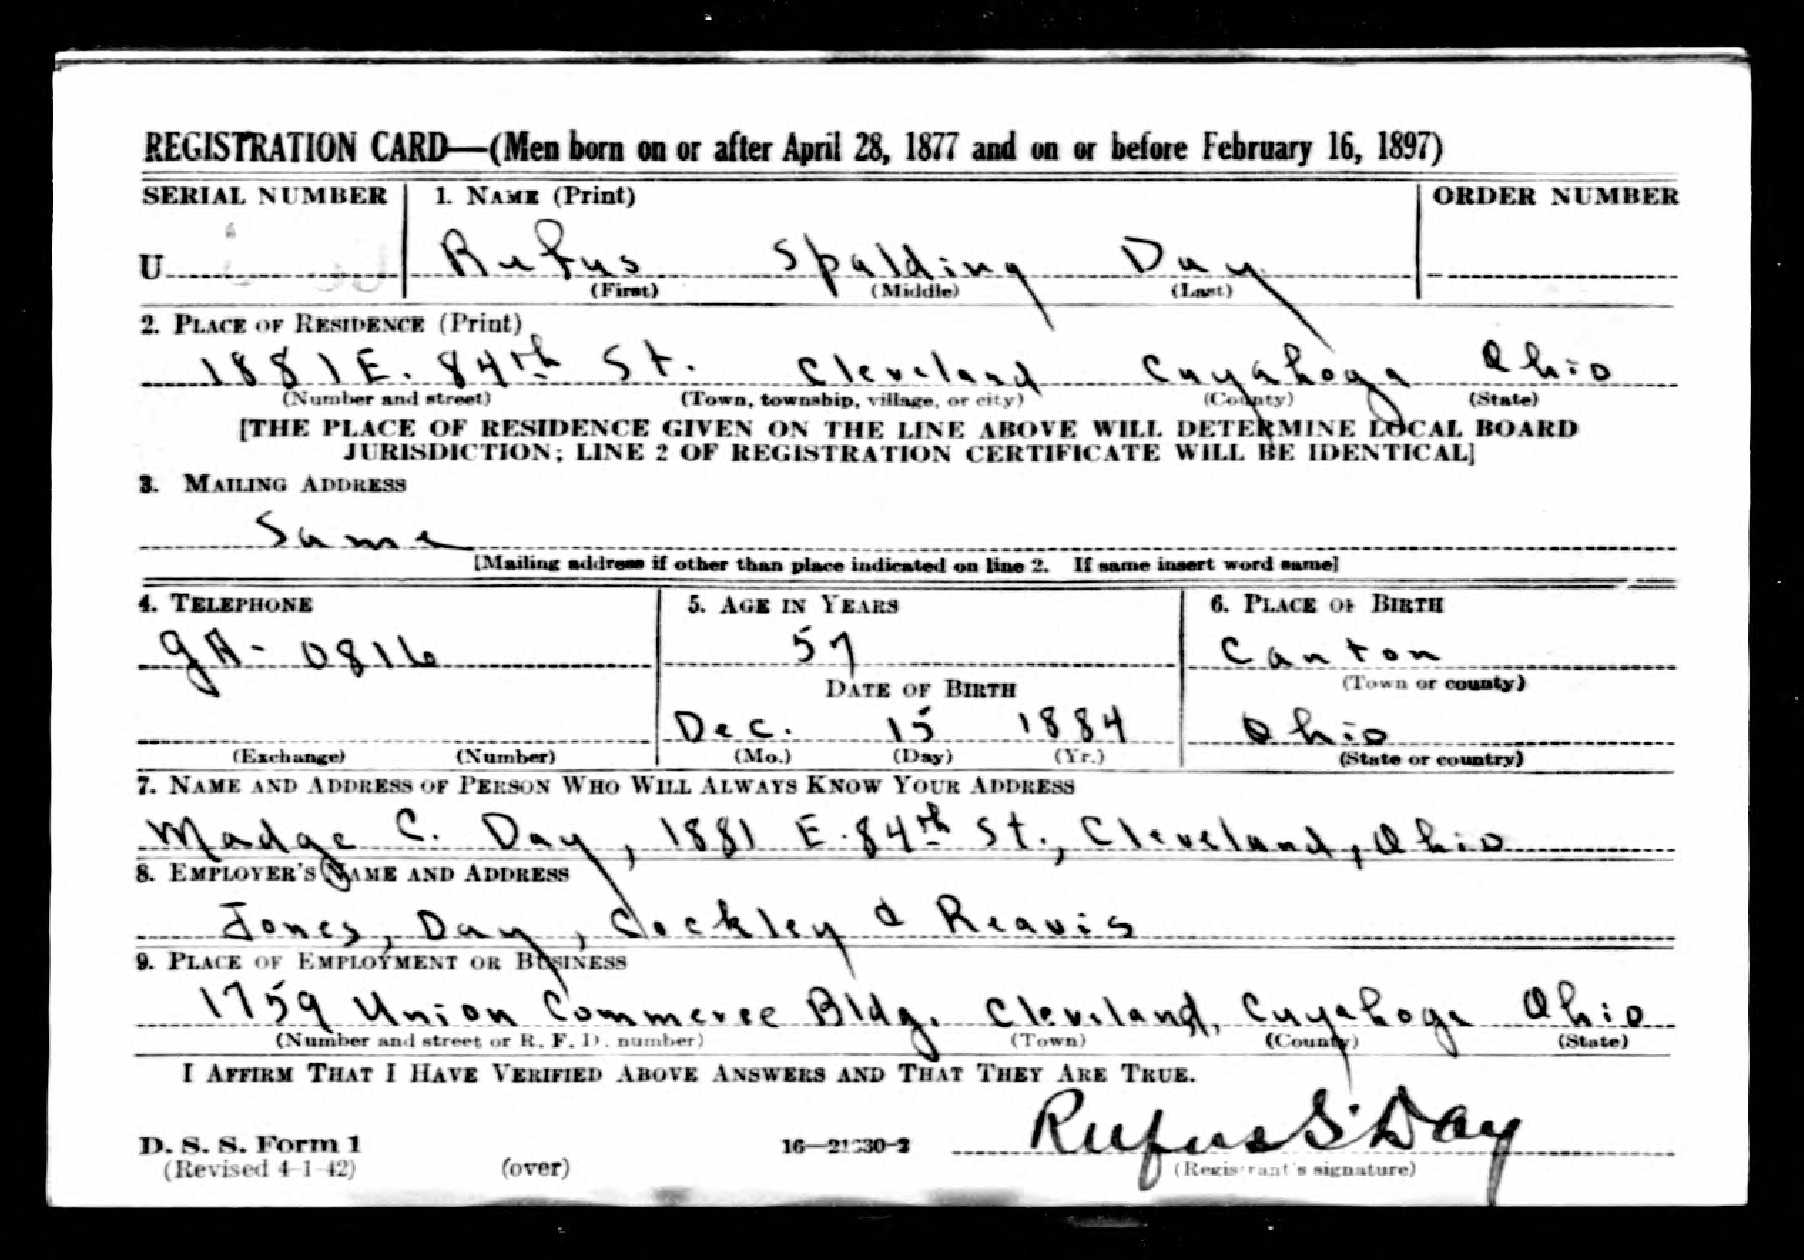 REGISTRATION CARD—(Men born on or after April 28, 1877 and on or before February 16, 1897)
SERIAL NUMBER 1. NAME (Print) ORDER NUMBER
U Rufus Spalding Day
(First) (Middle) (Last)
2. PLACE OF RESIDENCE (Print)
1881 E. 84th St. Cleveland Cuyahoga Ohio
(Number and street) (Town, township, village, or city) (County) (State)
[THE PLACE OF RESIDENCE GIVEN ON THE LINE ABOVE WILL DETERMINE LOCAL BOARD
JURISDICTION; LINE 2 OF REGISTRATION CERTIFICATE WILL BE IDENTICAL]
3. MAILING ADDRESS
Same
[Mailing address if other than place indicated on line 2. If same insert word same]
4. TELEPHONE 5. AGE IN YEARS 6. PLACE OF BIRTH
GA- 0816 57 Canton
DATE OF BIRTH (Town or county)
Dec. 15 1884 Ohio
(Exchange) (Number) (Mo.) (Day) (Yr.) (State or country)
7. NAME AND ADDRESS OF PERSON WHO WILL ALWAYS KNOW YOUR ADDRESS
Madge C. Day, 1881 E. 84th St., Cleveland, Ohio
8. EMPLOYER'S NAME AND ADDRESS
Jones, Day, Cockley & Reavis
9. PLACE OF EMPLOYMENT OR BUSINESS
1759 Union Commerce Bldg. Cleveland, Cuyahoga Ohio
(Number and street or R. F. D. number) (Town) (County) (State)
I AFFIRM THAT I HAVE VERIFIED ABOVE ANSWERS AND THAT THEY ARE TRUE.
Rufus S. Day
D. S. S. Form 1
(Revised 4-1-42) (over) (Registrant's signature)